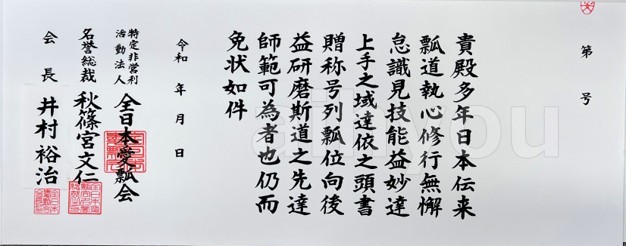 第　号
貴殿多年日本伝来
瓢道執心修行無懈
怠識見技能益妙達
上手之域達依之頭書
贈称号列瓢位向後
益研磨斯道之先達
師範可為者也仍而
免状如件
令和　年　月　日
特定非営利
活動法人
全日本愛瓢会
名誉総裁　秋篠宮文仁
会長　井村裕治